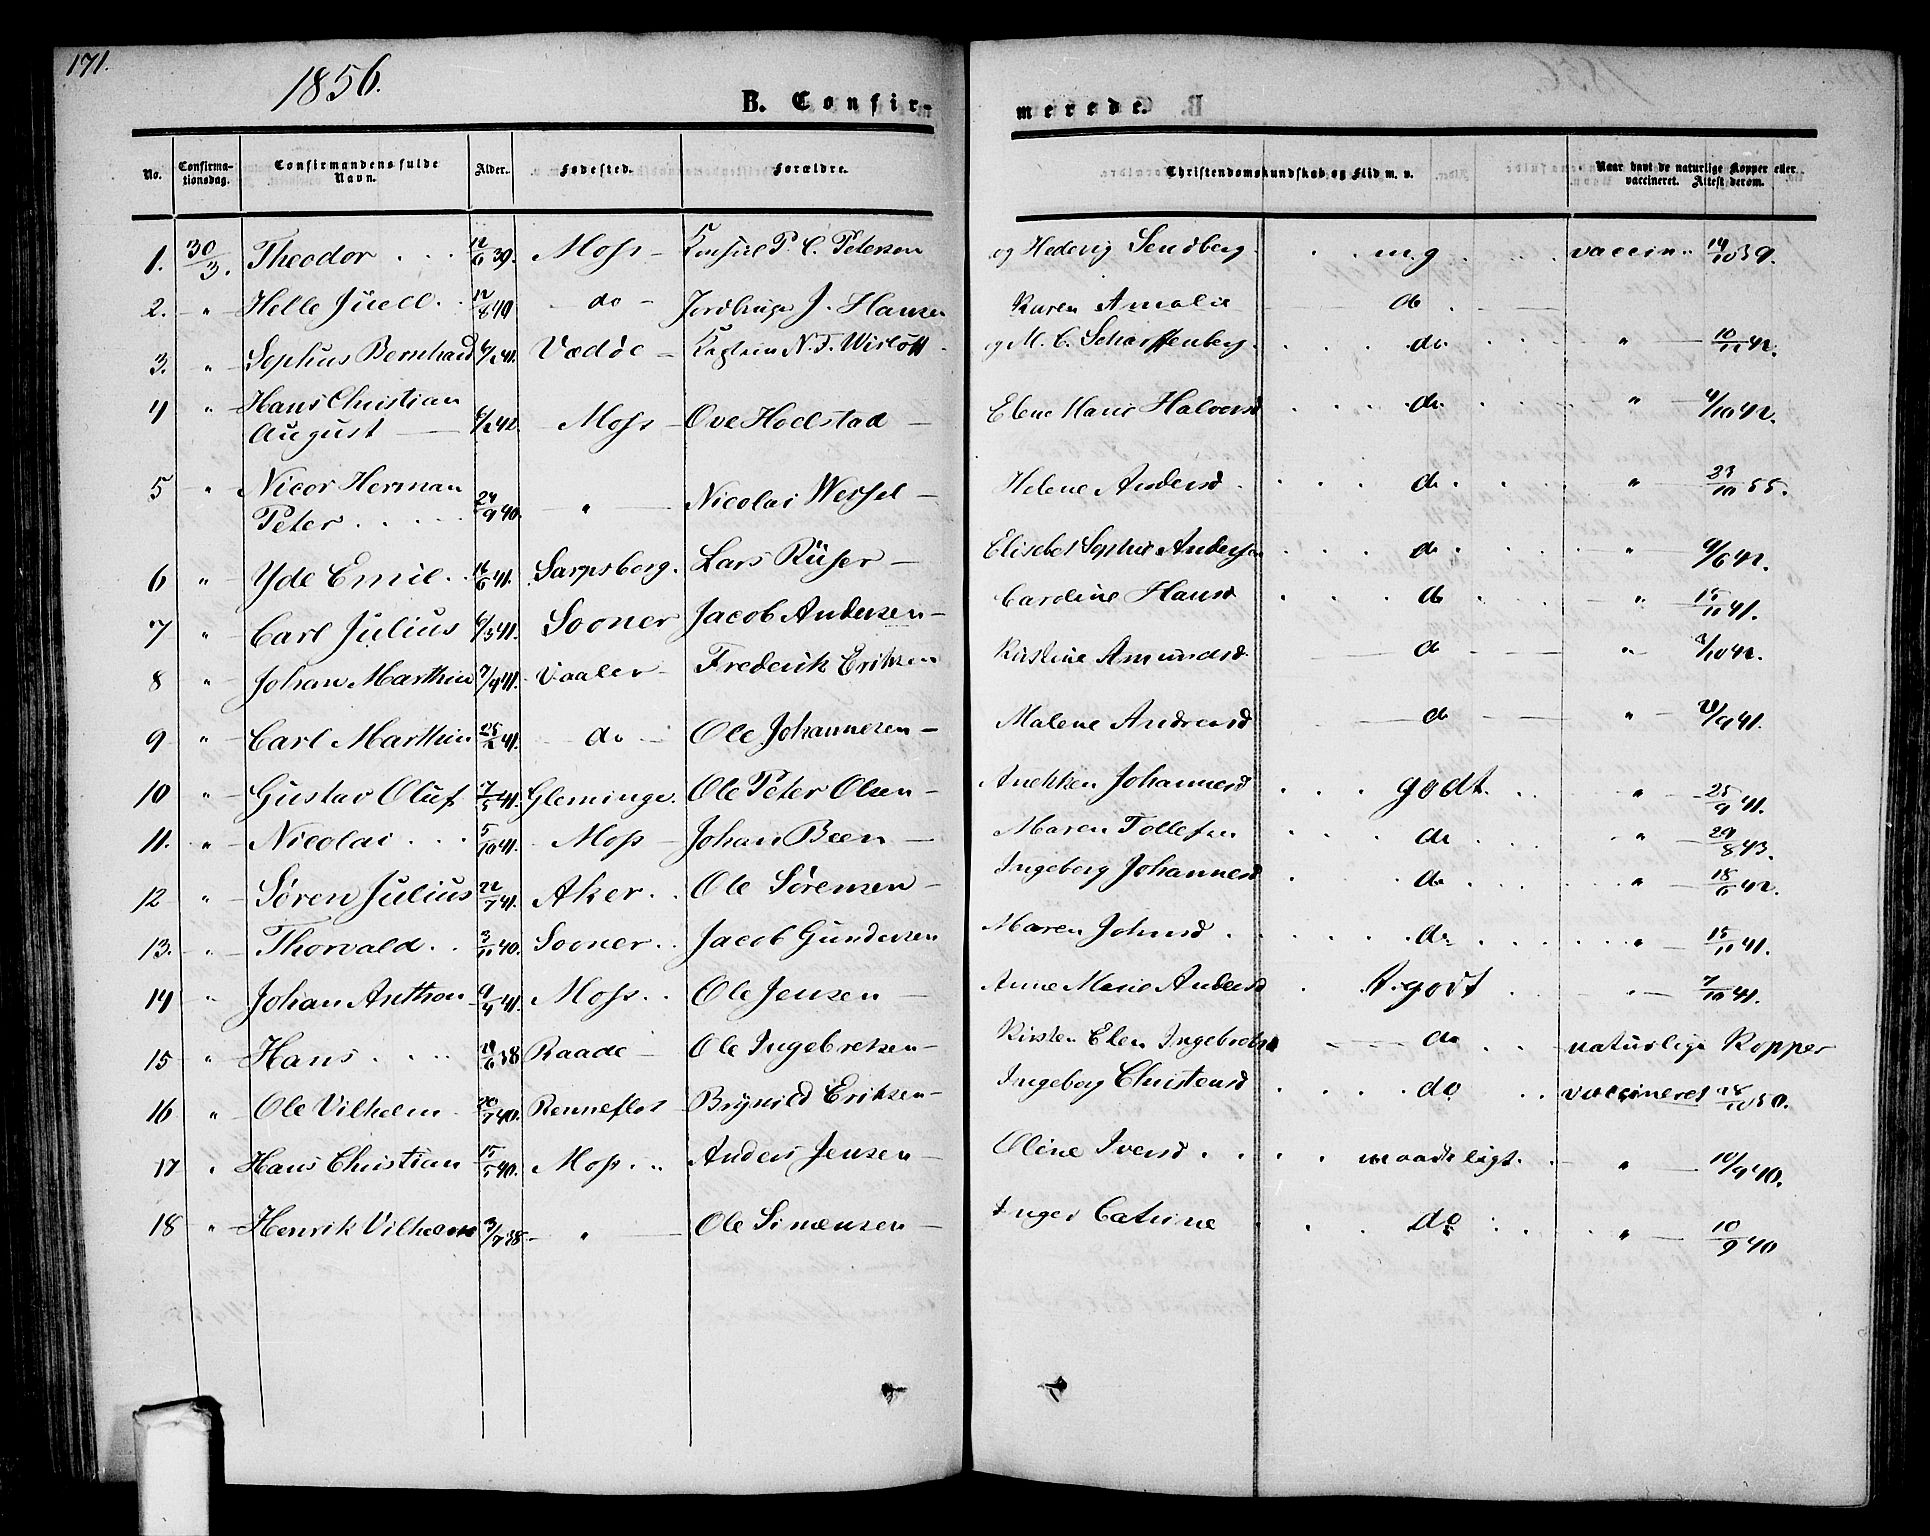 171.
1856.
B. Confir-
merede.
No. Confirma-tionsdag. Confirmandens fulde Navn. Alder. Fødested. Forældre. Christendomskundskab og Flid m. v. Naar havt de naturlige Kopper eller vaccineret. Attest derom.
1. 30/3. Theodor 12/6 39. Moss Konsul P. C. Petersen og Hedevig Sendberg mg vaccin. 14/10 39.
2. " Helle Jüell 12/8 40 do J. Hansen Karen Amalie do
3. " Sophus Bernhard Kaptein N. F. og M. C. Scharffenberg do " 10/11 42.
4 " Hans Christian August Moss Ove Hoelstad Elene Marie Halvorsd do " 4/10 42.
5 " Nicor Herman Peter 24/9 40. " Nicolai Wessel Helene Andersd. do " 23/10 55.
6 " Yde Emil 16/6 41. Sarpsborg. Lars Rüser Elisebet Sophie Andersen do " 9/6 42.
7 " Carl Julius 6/3 41. Sooner Jacob Andersen Caroline Hansd do " 15/11 41.
8 " Johan Marthin 7/4 41. Vaaler Frederik Eriksen Kristine Amundsd. do "
9 " Carl Marthin do Ole Johannesen Malene Andreasd do "
10 " Gustav Oluf 7/5 41. Gleminge. Ole Peter Olsen Anekken Johannesd godt. " 25/9 41.
11. " Nicolai 5/10 41. Moss Johan Been Maren Tollefsen do " 29/8 43.
12 " Søren Julius 22/7 41. Aker Ole Sørensen Ingeborg Johannesd do " 18/6 42.
13. " Thorvald 3/11 40. Sooner Jacob Gundersen Maren Johnsd do " 15/11 41.
14 " Johan Anthon 9/4 41. Moss Ole Jensen Anne Marie Andersd godt " 7/10 41.
15 " Hans Raade Ole Ingebretsen Kirsten Elen Ingebretsd do naturlige Kopper
16 " Ole Vilhelm 20/7 40. Brynild Eriksen Ingeborg Christensd do vaccineret
17 " Hans Christian 15/5 40. Moss Anders Jensen Oline Iversd maadeligt. " 10/9 40.
18 " Henrik Vilhelm 3/7 38 " Ole Simensen Inger Catrine do " 10/9 40